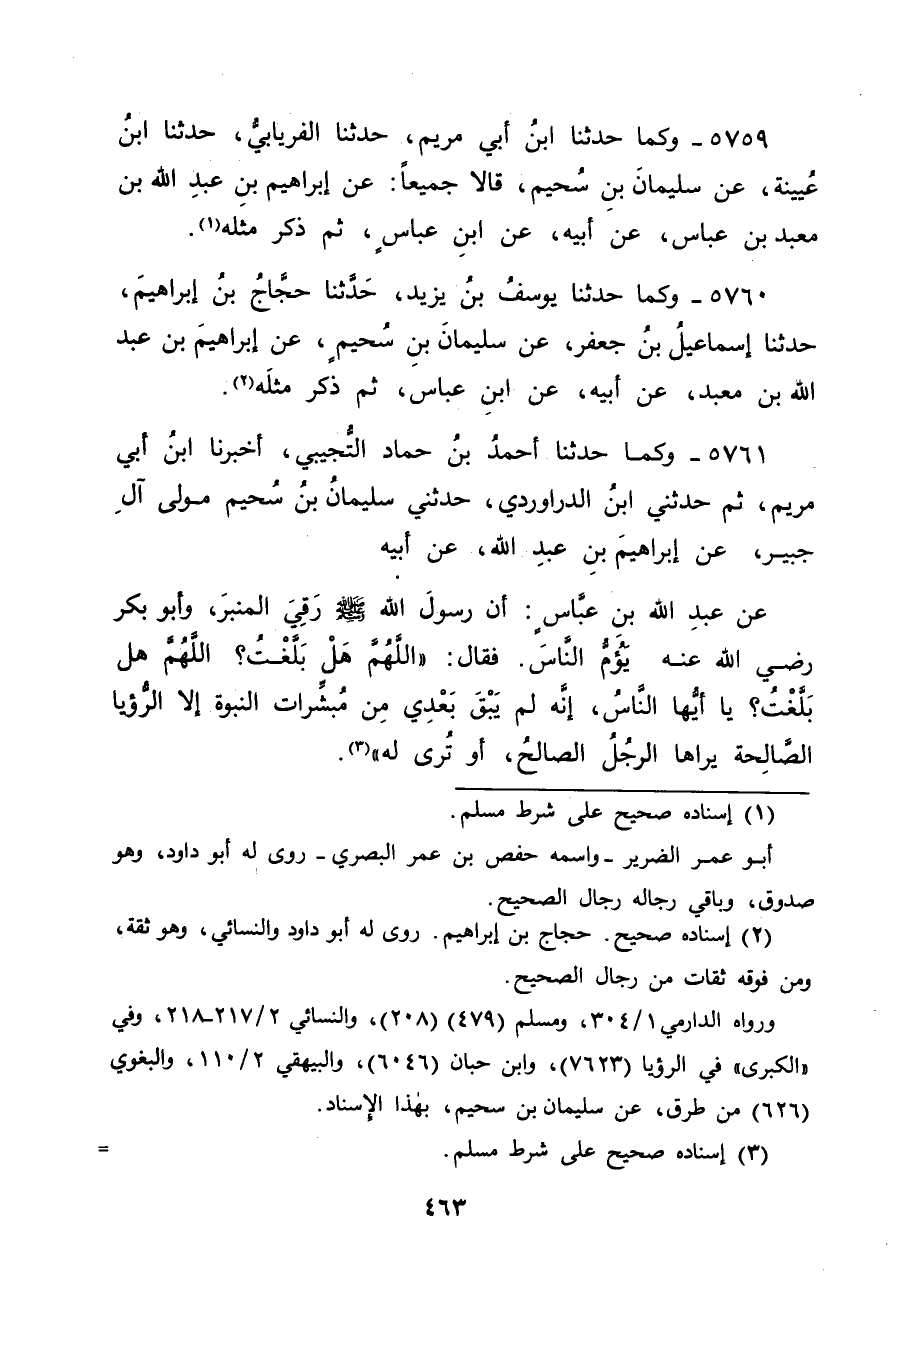 ٥٧٥٩ ـ وكما حدثنا ابنُ أبي مريم، حدثنا الفريابيُّ، حدثنا ابنُ
عُيينة، عن سليمانَ بنِ سُحيم، قالا جميعاً: عن إبراهيم بنِ عبدِ الله بن
معبد بن عباس، عن أبيه، عن ابنِ عباسٍ، ثم ذكر مثله(١).
٥٧٦٠ ـ وكما حدثنا يوسفُ بنُ يزيد، حَدَّثنا حجَّاجُ بنُ إبراهيمَ،
حدثنا إسماعيلُ بنُ جعفر، عن سليمانَ بنِ سُحيمٍ، عن إبراهيمَ بن عبد
الله بن معبد، عن أبيه، عن ابنِ عباس، ثم ذكر مثلَه(٢).
٥٧٦١ ـ وكما حدثنا أحمدُ بنُ حماد التُّجيبي، أخبرنا ابنُ أبي
مريم، ثم حدثني ابنُ الدراوردي، حدثني سليمانُ بنُ سُحيم مولى آلِ
جبير، عن إبراهيمَ بنِ عبدِ الله، عن أبيه
عن عبدِ الله بن عبَّاسٍ: أن رسولَ الله ﷺ رَقِيَ المنبرَ، وأبو بكر
رضي الله عنه يَؤُمُّ النَّاسَ. فقال: «اللَّهُمَّ هَلْ بَلَّغْتُ؟ اللَّهُمَّ هل
بَلَّغْتُ؟ يا أيُّها النَّاسُ، إنَّه لم يَبْقَ بَعْدِي مِن مُبشِّرات النبوة إلا الرُّؤيا
الصَّالِحة يراها الرجُلُ الصالحُ، أو تُرى له»(٣).
(١) إسناده صحيح على شرط مسلم.
أبو عمر الضرير ـ واسمه حفص بن عمر البصري ـ روى له أبو داود، وهو
صدوق، وباقي رجاله رجال الصحيح.
(٢) إسناده صحيح. حجاج بن إبراهيم. روى له أبو داود والنسائي، وهو ثقة،
ومن فوقه ثقات من رجال الصحيح.
ورواه الدارمي ٣٠٤/١، ومسلم (٤٧٩) (٢٠٨)، والنسائي ٢١٧/٢ـ٢١٨، وفي
«الكبرى» في الرؤيا (٧٦٢٣)، وابن حبان (٦٠٤٦)، والبيهقي ١١٠/٢، والبغوي
(٦٢٦) من طرق، عن سليمان بن سحيم، بهٰذا الإسناد.
(٣) إسناده صحيح على شرط مسلم. =
٤٦٣